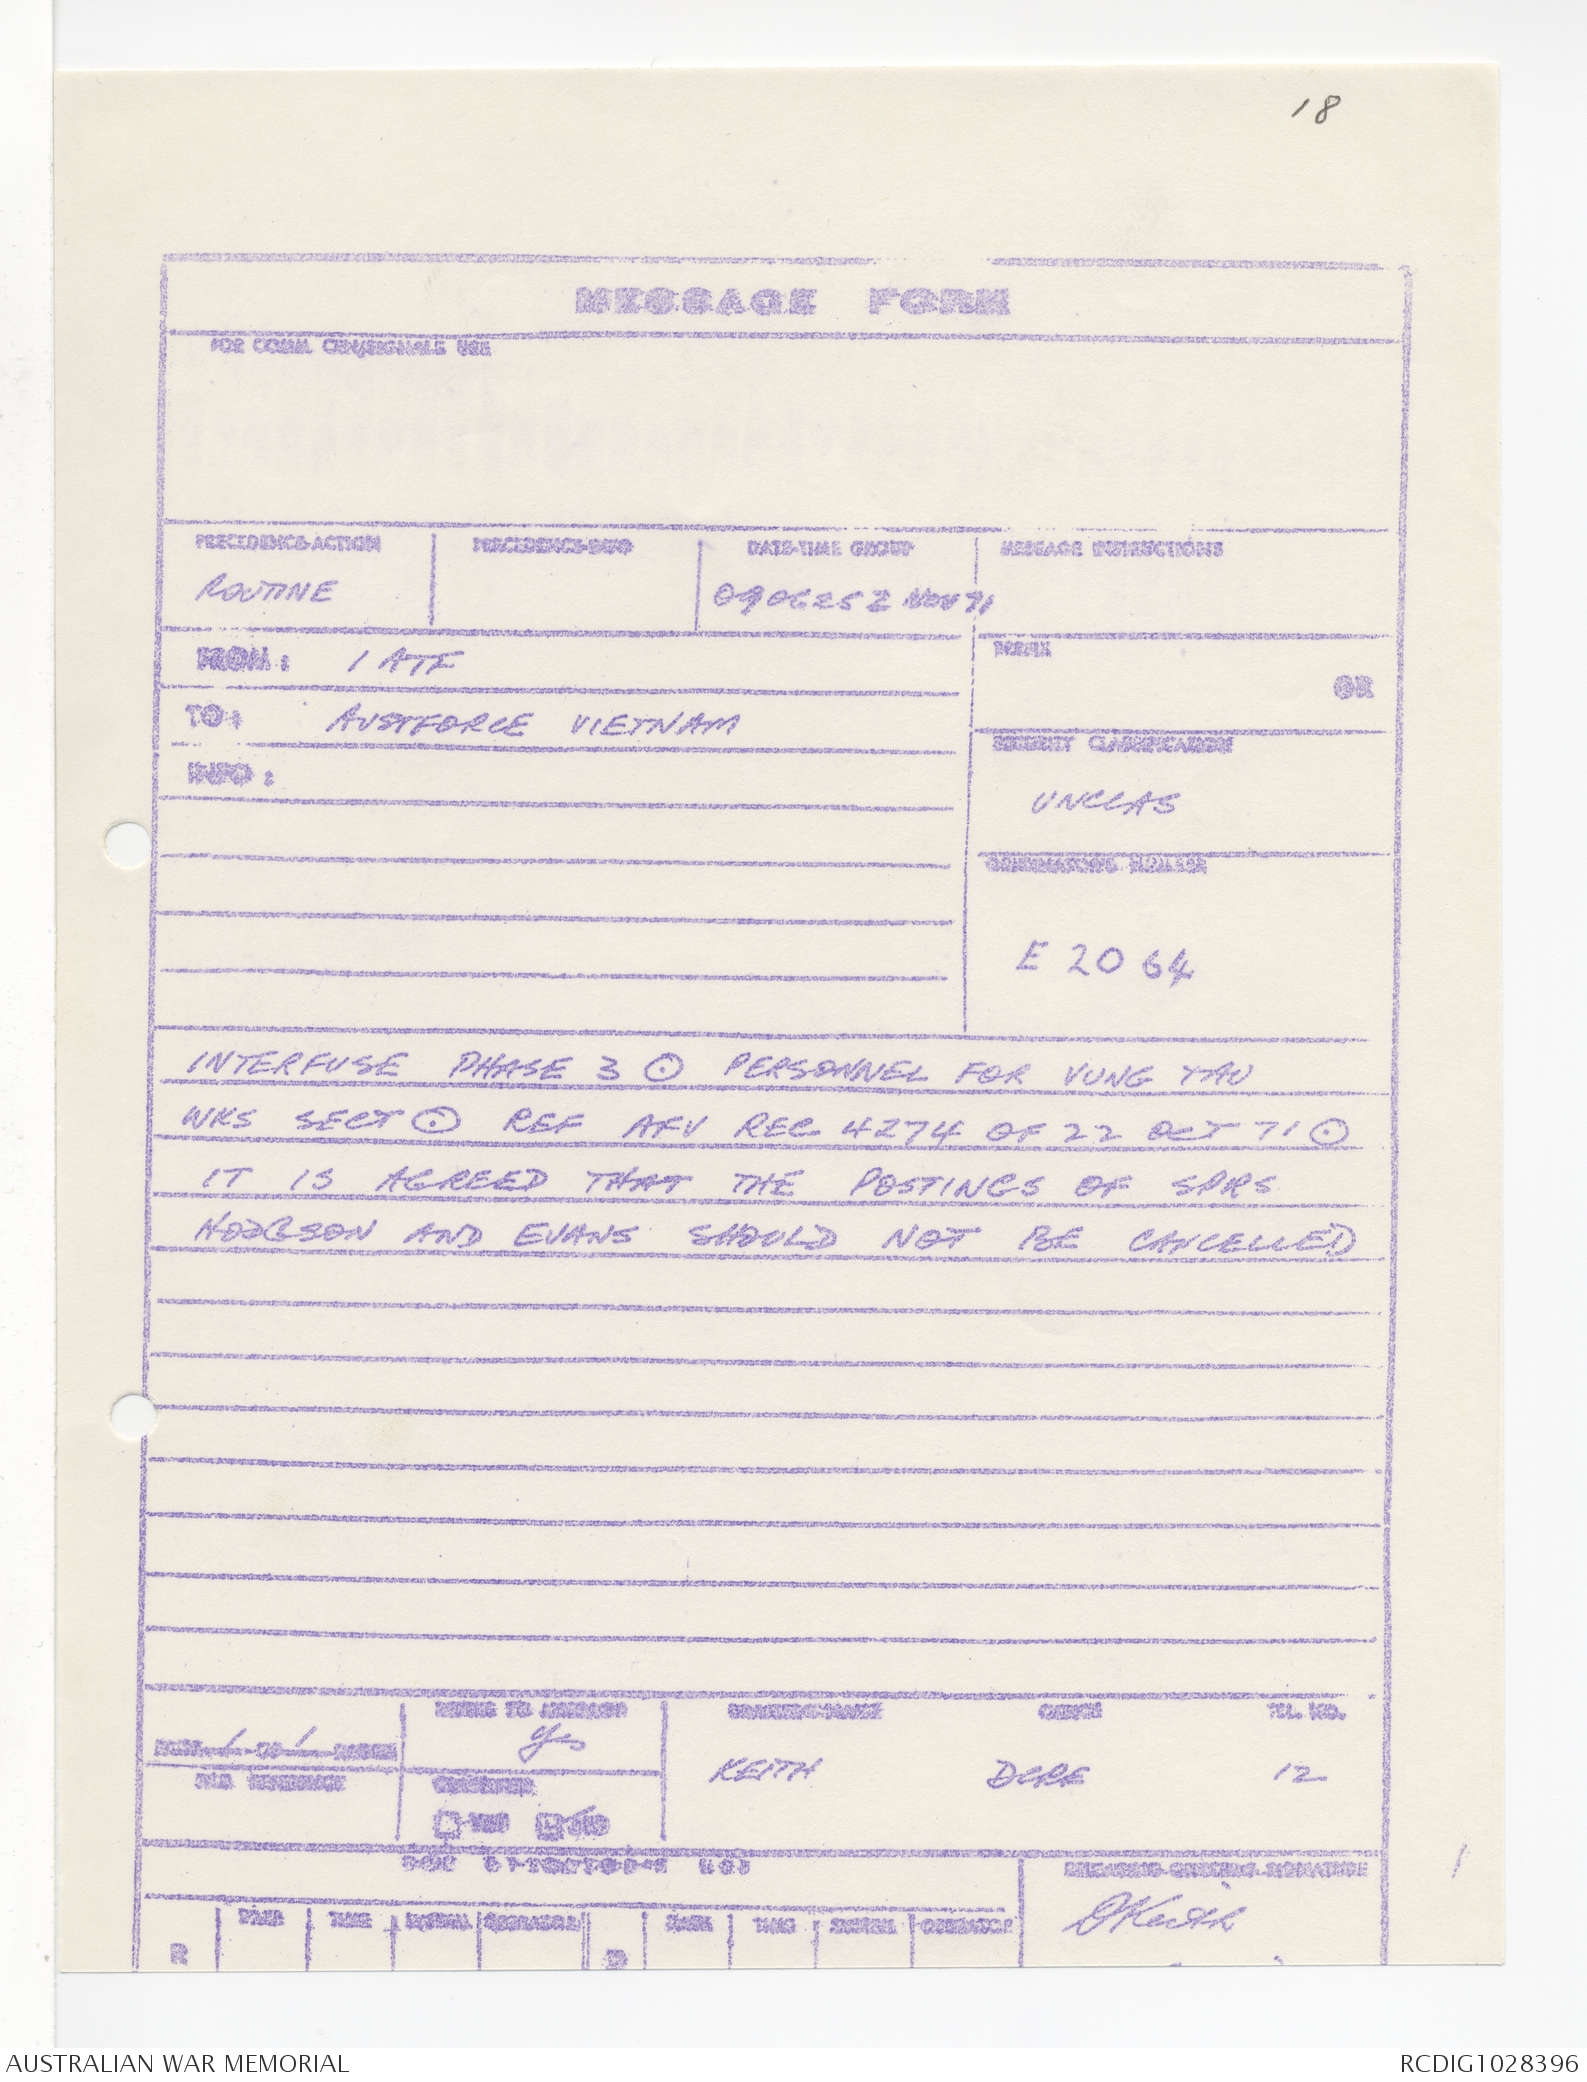 18
MESSAGE FORM
FOR COMM. CEN/SIGNALS USE
PRECEDENCE-ACTION PRECEDENCE-INFO DATE-TIME GROUP MESSAGE INSTRUCTIONS
ROUTINE 090625Z NOV 71
FROM: 1 ATF
PREFIX
GR
TO: AUSTFORCE VIETNAM
SECURITY CLASSIFICATION
INFO:
UNCLAS
ORIGINATOR'S NUMBER
E 2064
INTERFUSE PHASE 3 ⊙ PERSONNEL FOR VUNG TAU
WKS SECT ⊙ REF AFV REC 4274 OF 22 OCT 71 ⊙
IT IS AGREED THAT THE POSTINGS OF SPRS
HODGSON AND EVANS SHOULD NOT BE CANCELLED
PAGE 1 OF 1 PAGES
REFERS TO MESSAGE
Yes
DRAFTER'S NAME OFFICE TEL. NO.
KEITH DCRE 12
FILE REFERENCE
CLASSIFIED
YES NO
FOR OPERATOR'S USE
RELEASING OFFICER'S SIGNATURE
DKeith
R DATE TIME SYSTEM OPERATOR D DATE TIME SYSTEM OPERATOR
1
AUSTRALIAN WAR MEMORIAL
RCDIG1028396